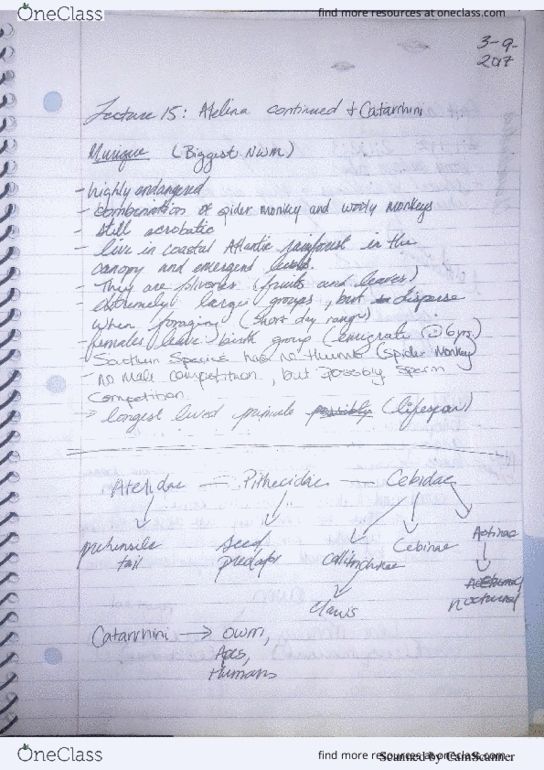 OneClass
find more resources at oneclass.com
3-9-
2017
Lecture 15: Atelina continued + Catarrhini
Murique (Biggest NWM)
- highly endangered
- combination of spider monkey and wooly monkeys
- still acrobatic
- live in coastal Atlantic rainforest in the
canopy and emergend levels.
- They are folivores (fruits and leaves)
- extremely large groups, but disperse
when foraging (short day range)
- females leave birth group (emigrate @ 6yrs)
- Southern Species has no thumb (spider monkey
- No male competition, but possibly sperm
competition
→ longest lived primate possibly (lifespan)
Atelidae — Pithecidae — Cebidae
prehensile tail
seed predator
callitrichinae
Cebinae
Aotinae
claws
nocturnal
Catarrhini → OWM,
Apes,
Humans
OneClass
find more resources at oneclass.com
Scanned by CamScanner